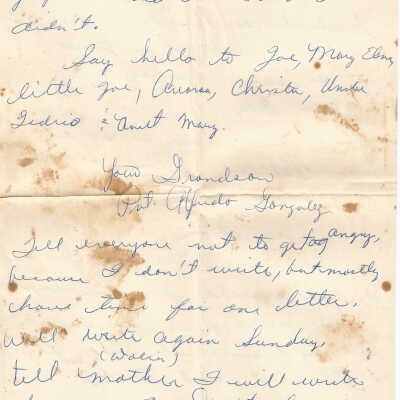 didn't.
Say hello to Joe, Mary Elma,
little Joe, Aurora, Christa, Uncle
Isidrio & Aunt Mary.
Your Grandson
Pvt. Alfredo Gonzalez
Tell everyone not to get angry,
because I don't write, but mostly
have time for one letter.
Will write again Sunday.
tell mother I will write